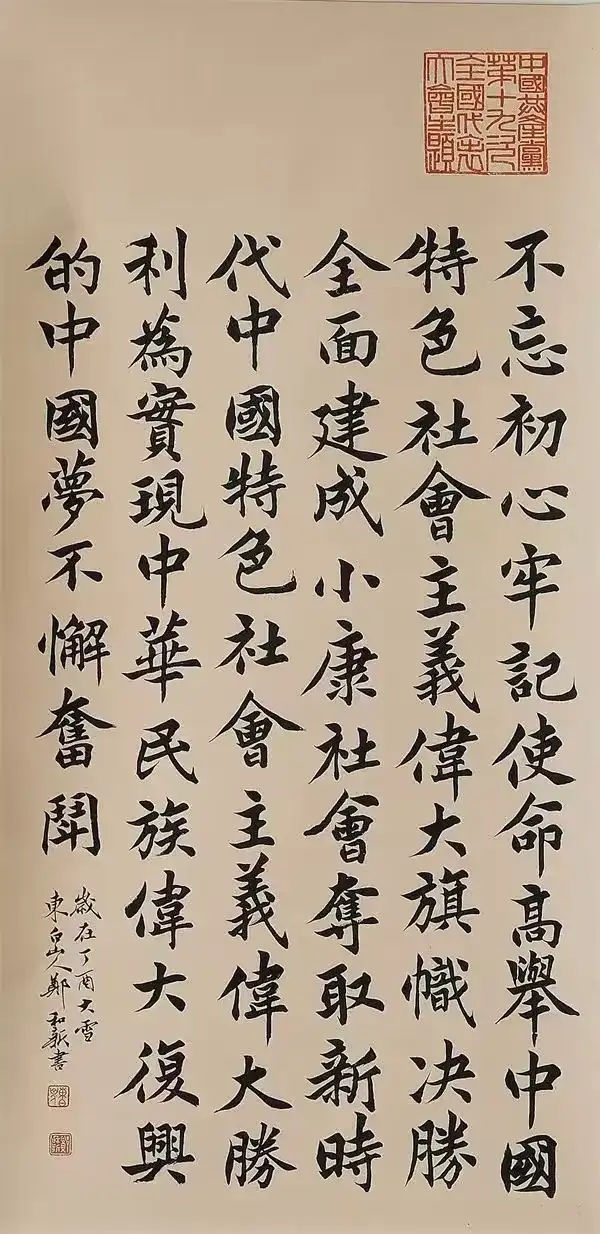 中國共產黨
第十九次
全國代表
大會主題
不忘初心牢記使命高舉中國
特色社會主義偉大旗幟決勝
全面建成小康社會奪取新時
代中國特色社會主義偉大勝
利為實現中華民族偉大復興
的中國夢不懈奮鬪
歲在丁酉大雪
東白山人鄭和新書